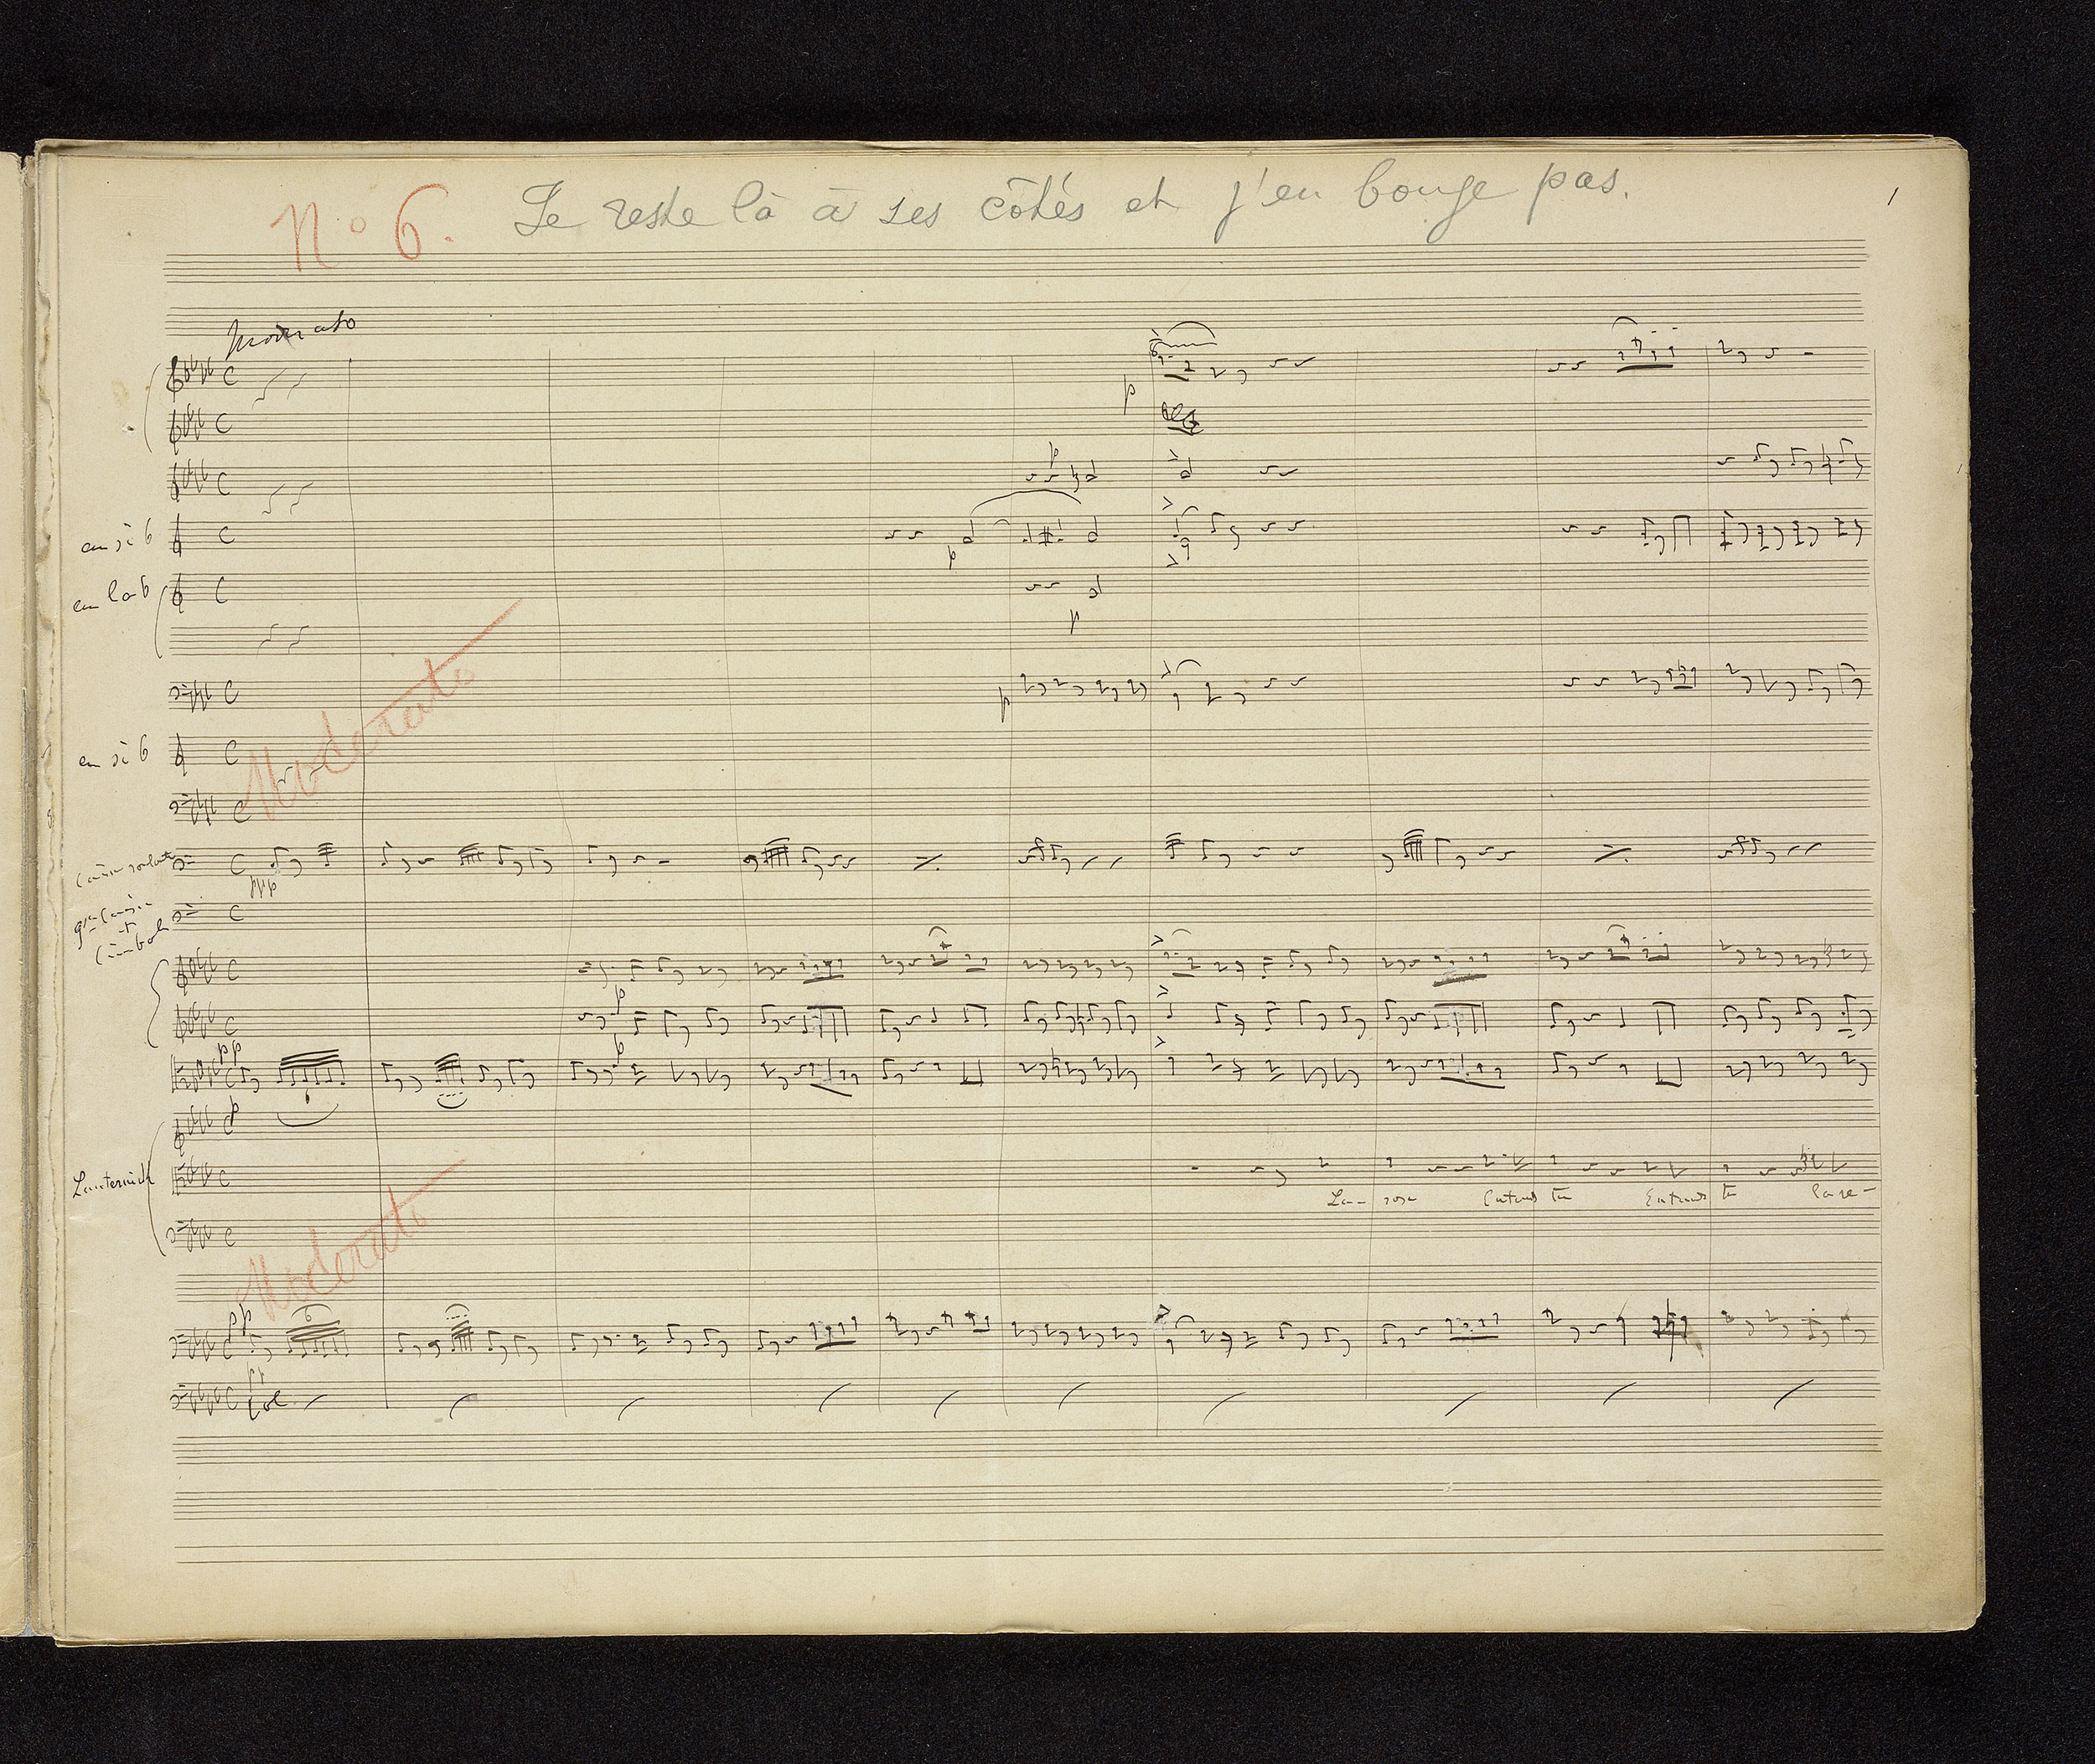 No 6. Je reste là à ses côtés et j'en bouge pas.
1
Moderato
p
p
en si b
p
en la b
p
Moderato
p
en si b
Caisse roulante
ppp
gr Caisse
et
Cimbal
p
pp
p
p
Lanternick
La- rose Entends tu Entends tu la re-
Moderato
pp
pp
Col